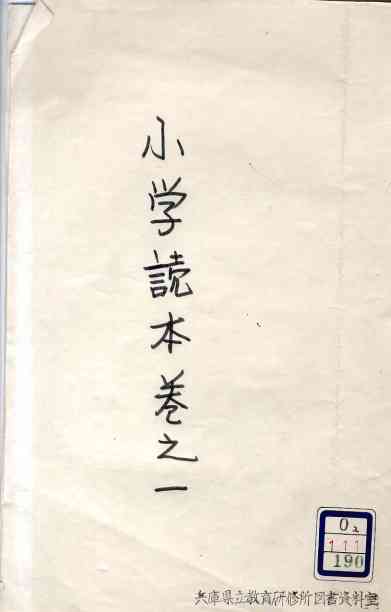 小学読本巻之一
O2
111
190
兵庫県立教育研修所図書資料室